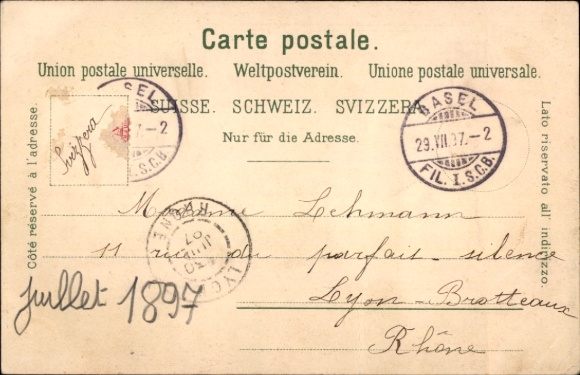 Carte postale.
Union postale universelle. Weltpostverein. Unione postale universale.
SUISSE. SCHWEIZ. SVIZZERA.
Nur für die Adresse.
Côté réservé à l'adresse.
Lato riservato all' indirizzo.
Svizzera
BASEL
7.-2
I.S.C.B.
BASEL
29.VII.97.-2
FIL. I.S.C.B.
RHONE
97
LYO
Madame Lehmann
11 rue du parfait-silence
Lyon-Brotteaux
Rhône
juillet 1897